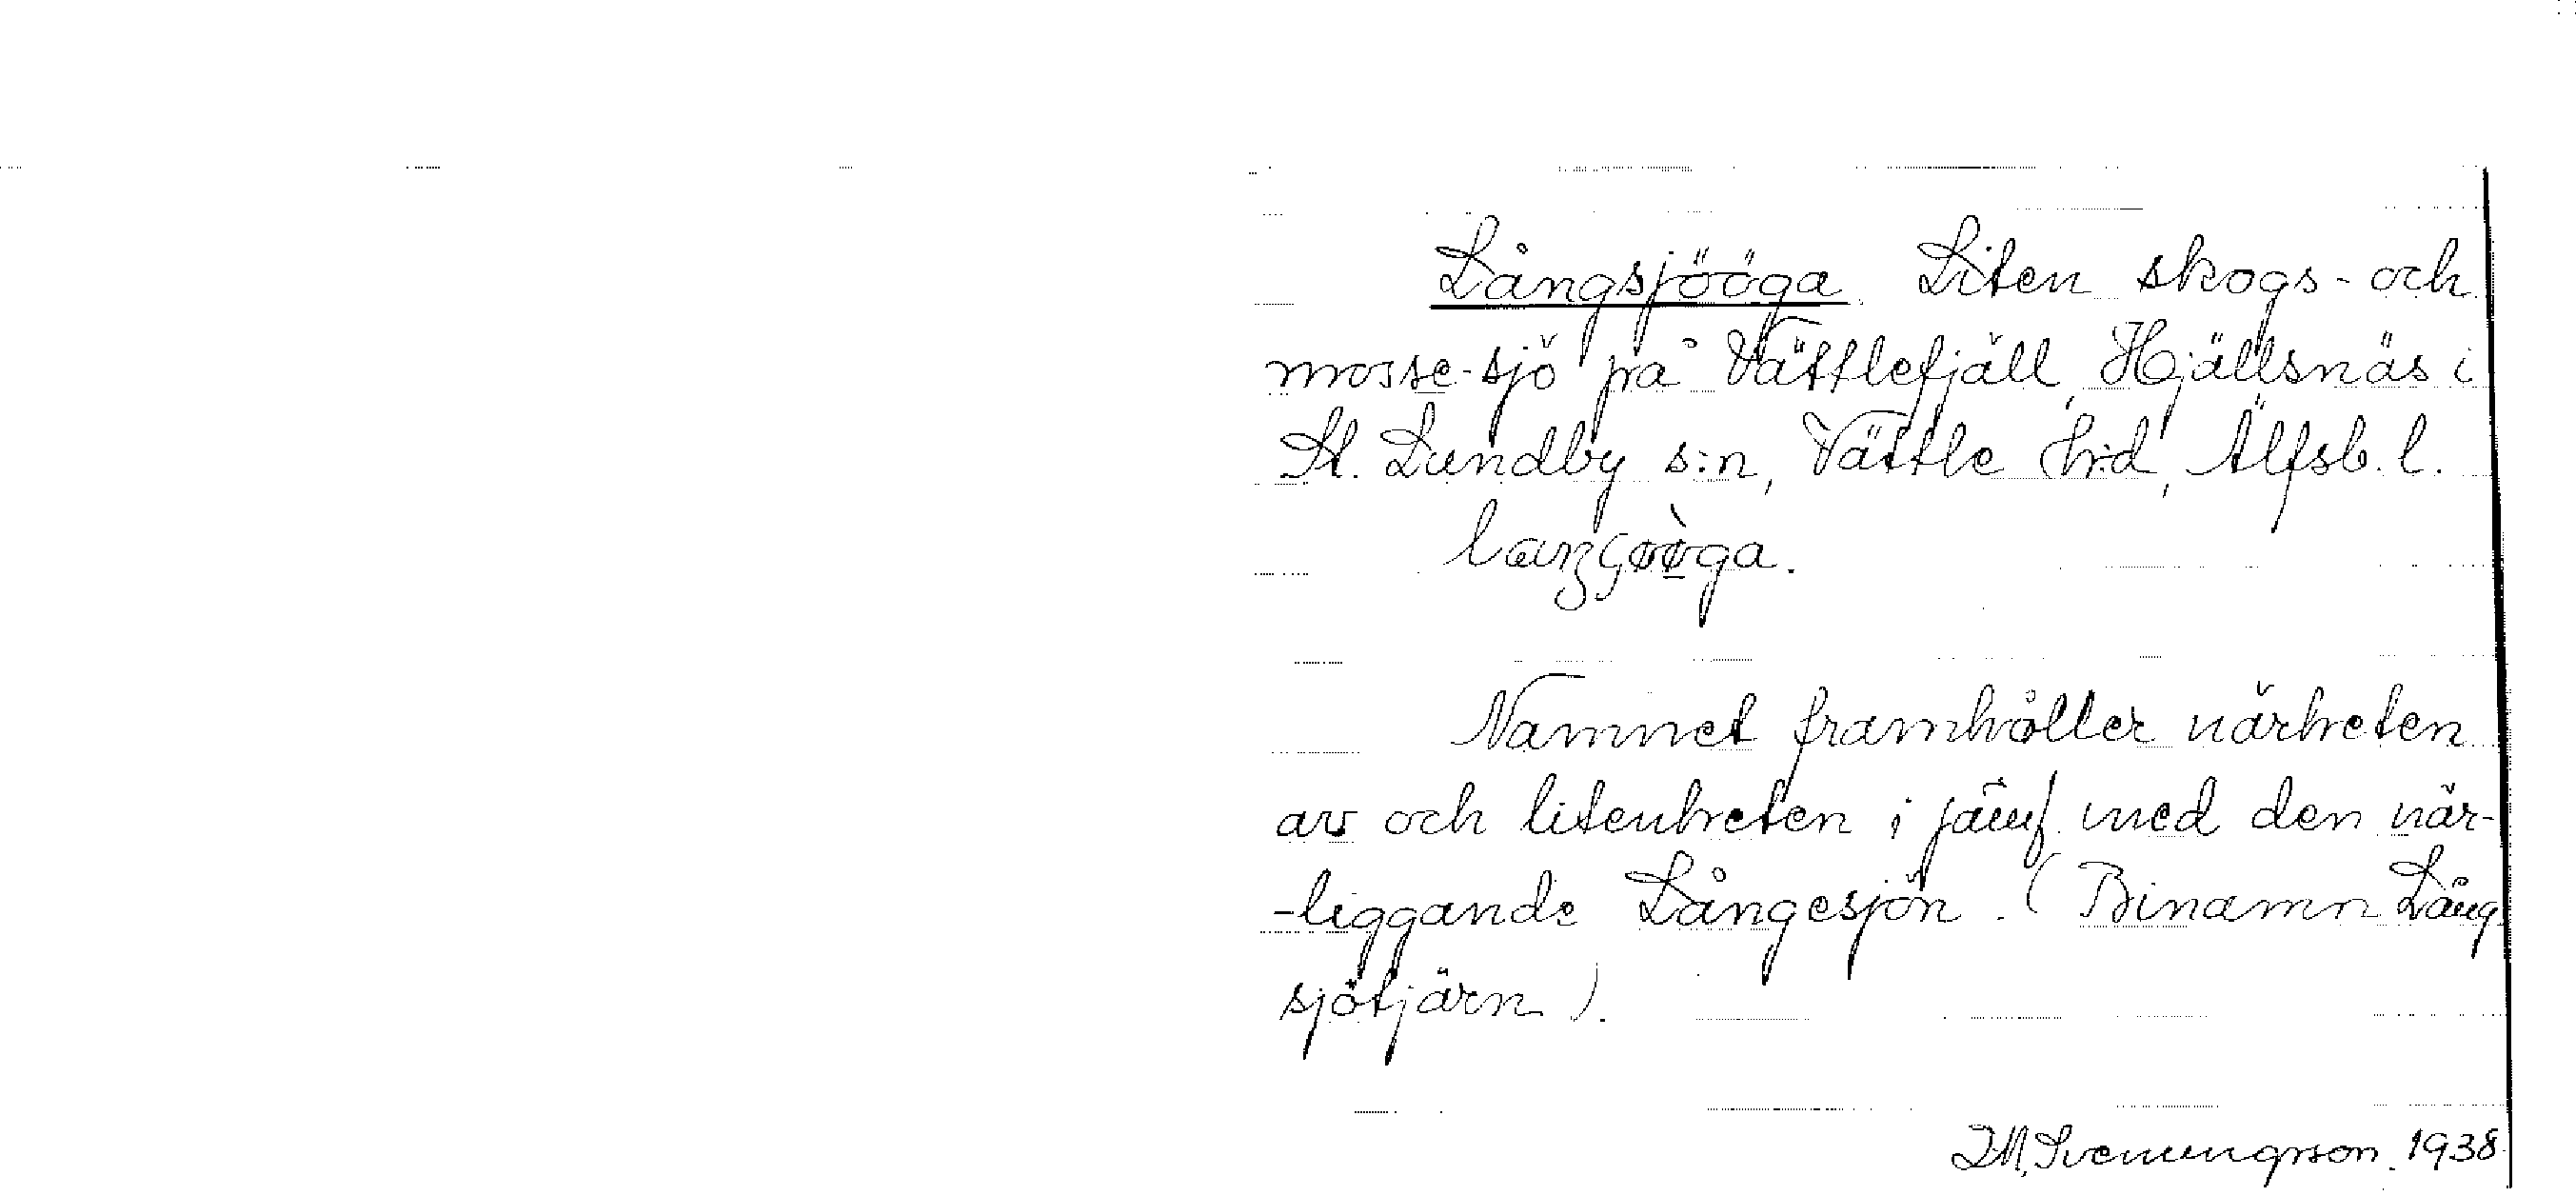 Långsjööga. Liten skogs- och
mosse-sjö på Vättlefjäll, Hjällsnäs i
St. Lundby s:n, Vättle hrd, Älfsb. l.
Namnet framhåller närheten
av och litenheten i jämf. med den när-
-liggande Långesjön. (Binamn Lång
sjötjärn).
I.M. Svenungsson. 1938